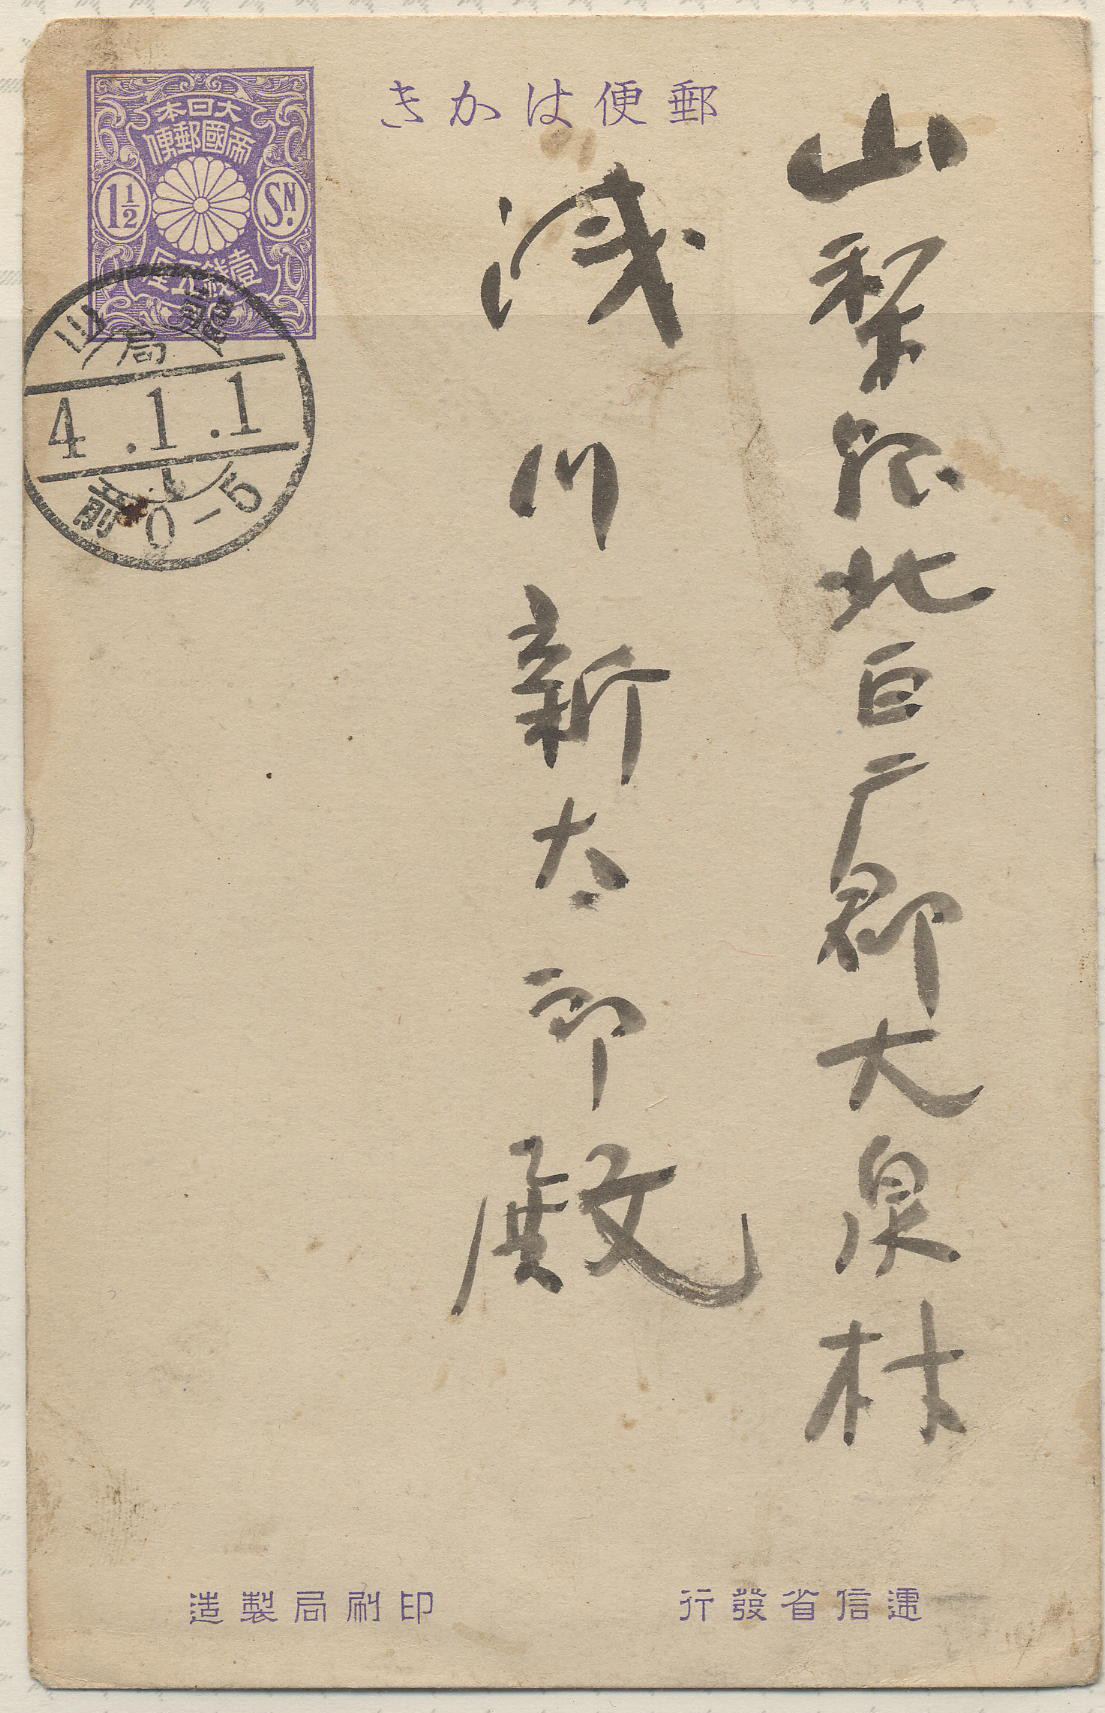 郵便はかき
大日本
帝國郵便
1½ SN.
壹錢五厘
龍山
局
4.1.1
前0-5
山梨縣北巨广郡大泉村
浅川新太郎殿
逓信省發行
印刷局製造